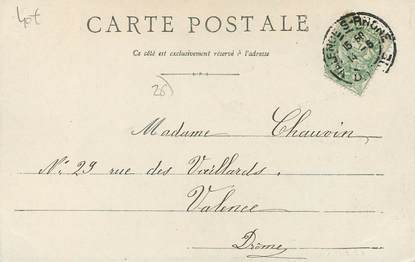 Lot
CARTE POSTALE
Ce côté est exclusivement réservé à l'adresse
VALENCE-S-RHONE
Madame Chauvin
N° 29 rue des Vieillards.
Valence
Drôme